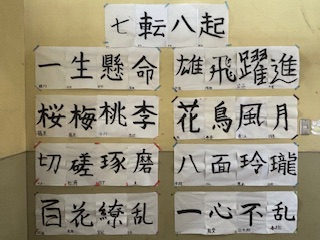 七転八起
一生懸命
雄飛躍進
桜梅桃李
花鳥風月
切磋琢磨
八面玲瓏
百花繚乱
一心不乱